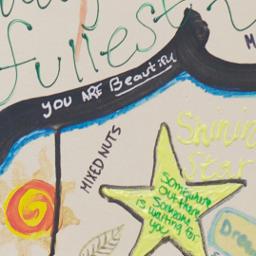 fullest
YOU ARE Beautiful
MIXED NUTS
Shining
Star
Somewhere
Out there
Someone
is waiting for
you